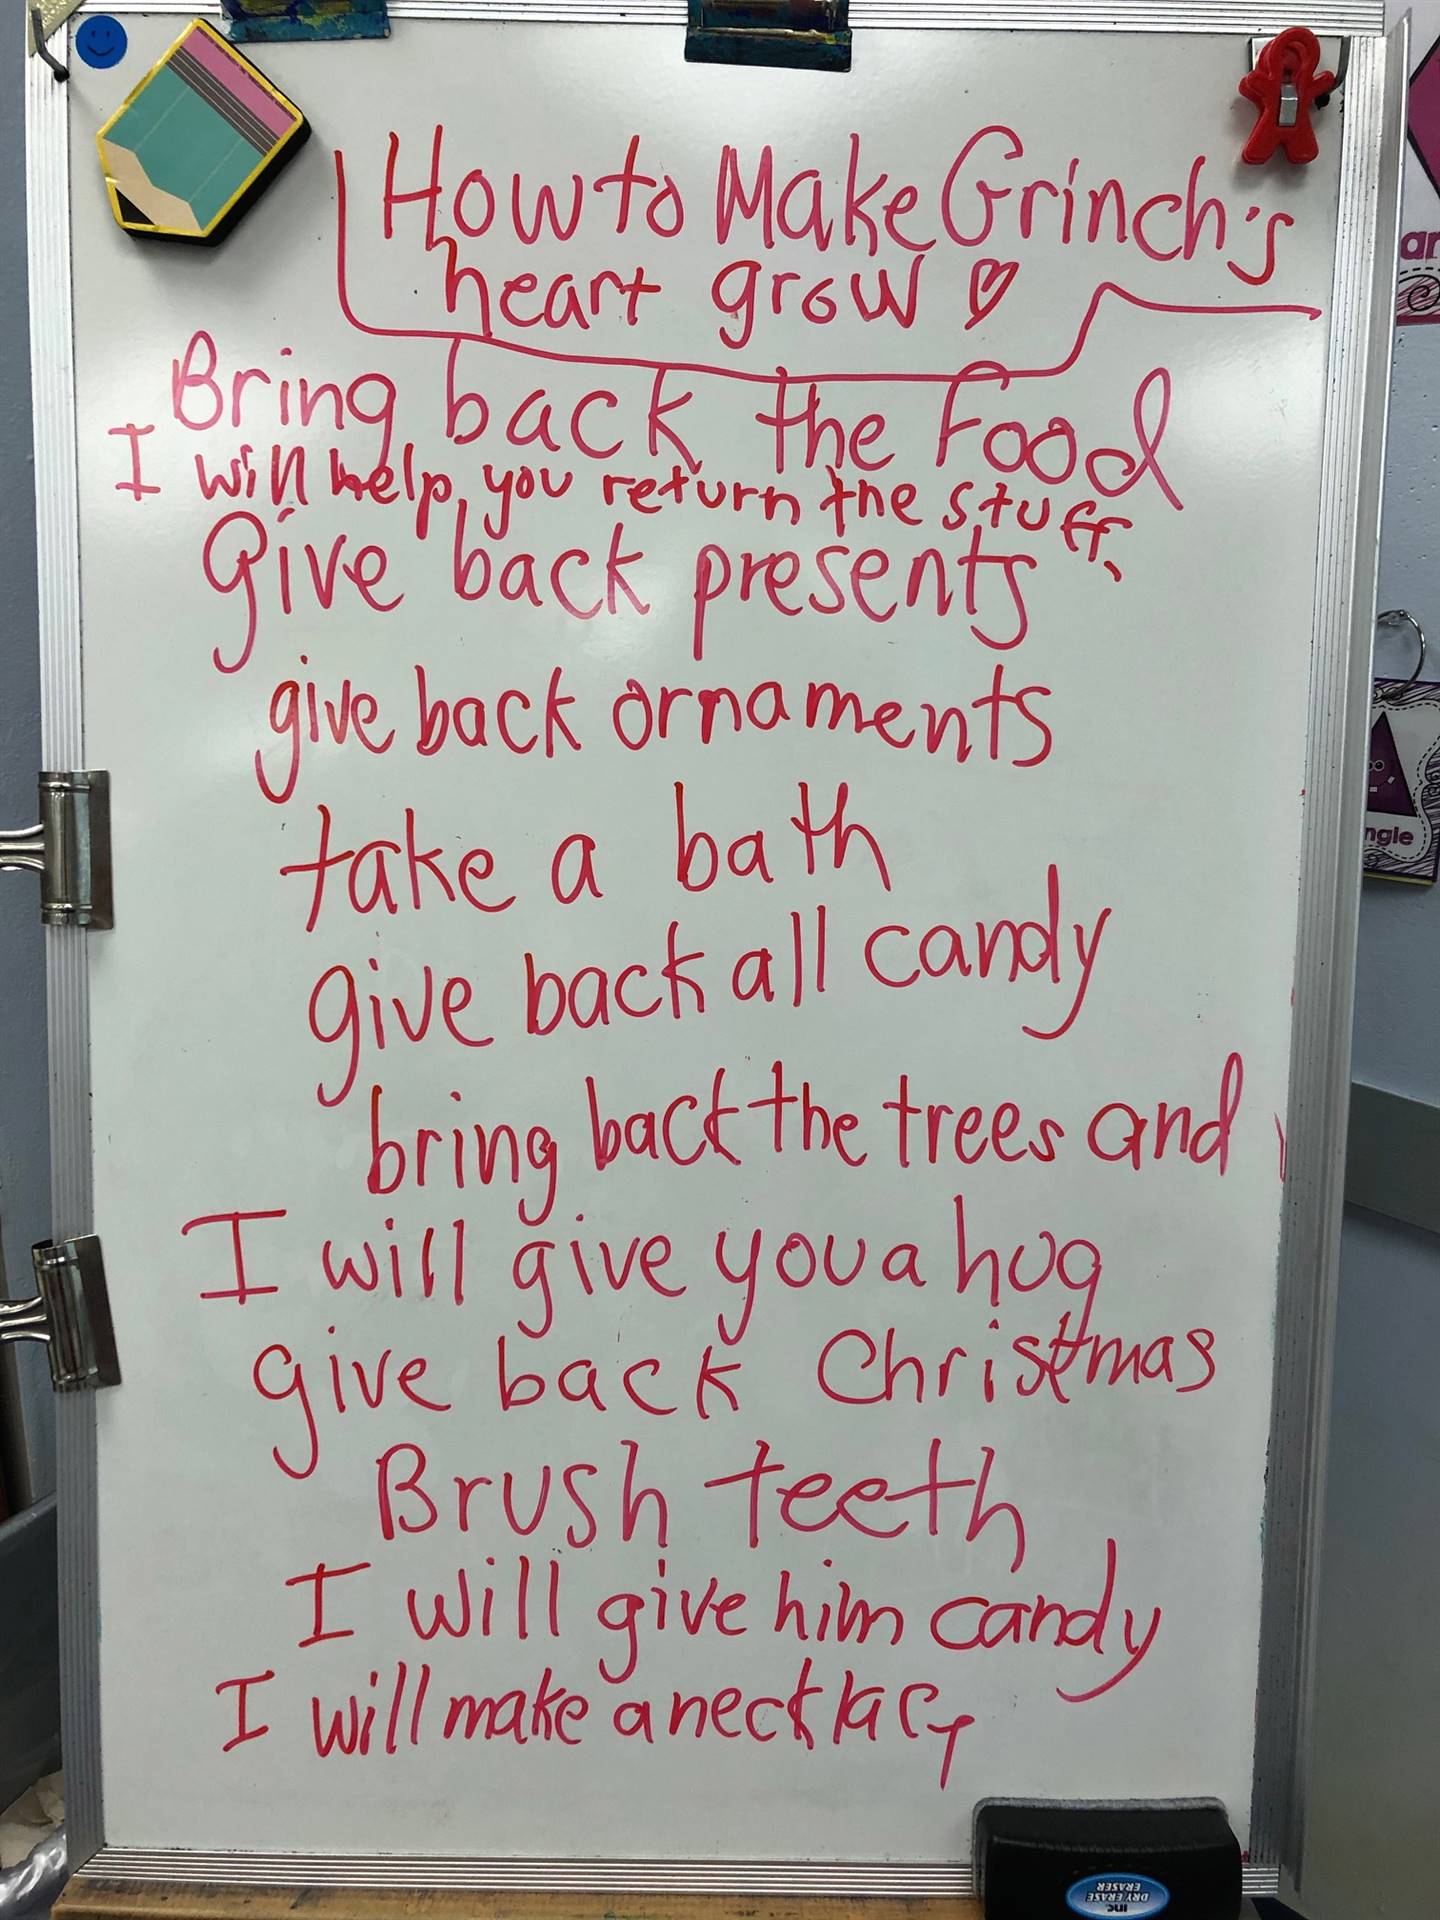 How to Make Grinch's
heart grow ♡
Bring back the Food
I will help you return the stuff.
Give back presents
give back ornaments
take a bath
give back all candy
bring back the trees and
I will give you a hug
give back Christmas
Brush teeth
I will give him candy
I will make a necklace
ngle
inc
DRY ERASE
ERASER